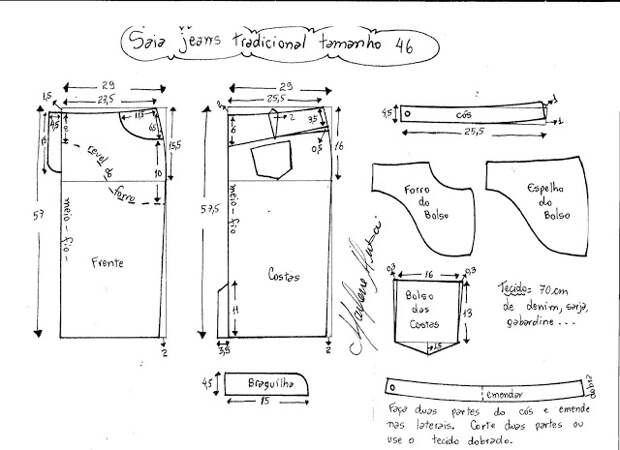 Saia jeans tradicional tamanho 46
29
27,5
1,5
4,5
11,5
6,5
15,5
10
revel do
forro
57
meio-fio
Frente
2
29
25,5
2
3,5
0,5
16
57,5
meio-fio
Costas
11
3,5
2
4,5
Braguilha
15
4,5
cós
1
1
25,5
Forro
do
Bolso
Espelho
do
Bolso
0,3
16
0,3
Bolso
das
Costas
13
Tecido= 70 cm
de denim, sarja,
gabardine...
emendar
Faça duas partes do cós e emende
nas laterais. Corte duas partes ou
use o tecido dobrado.